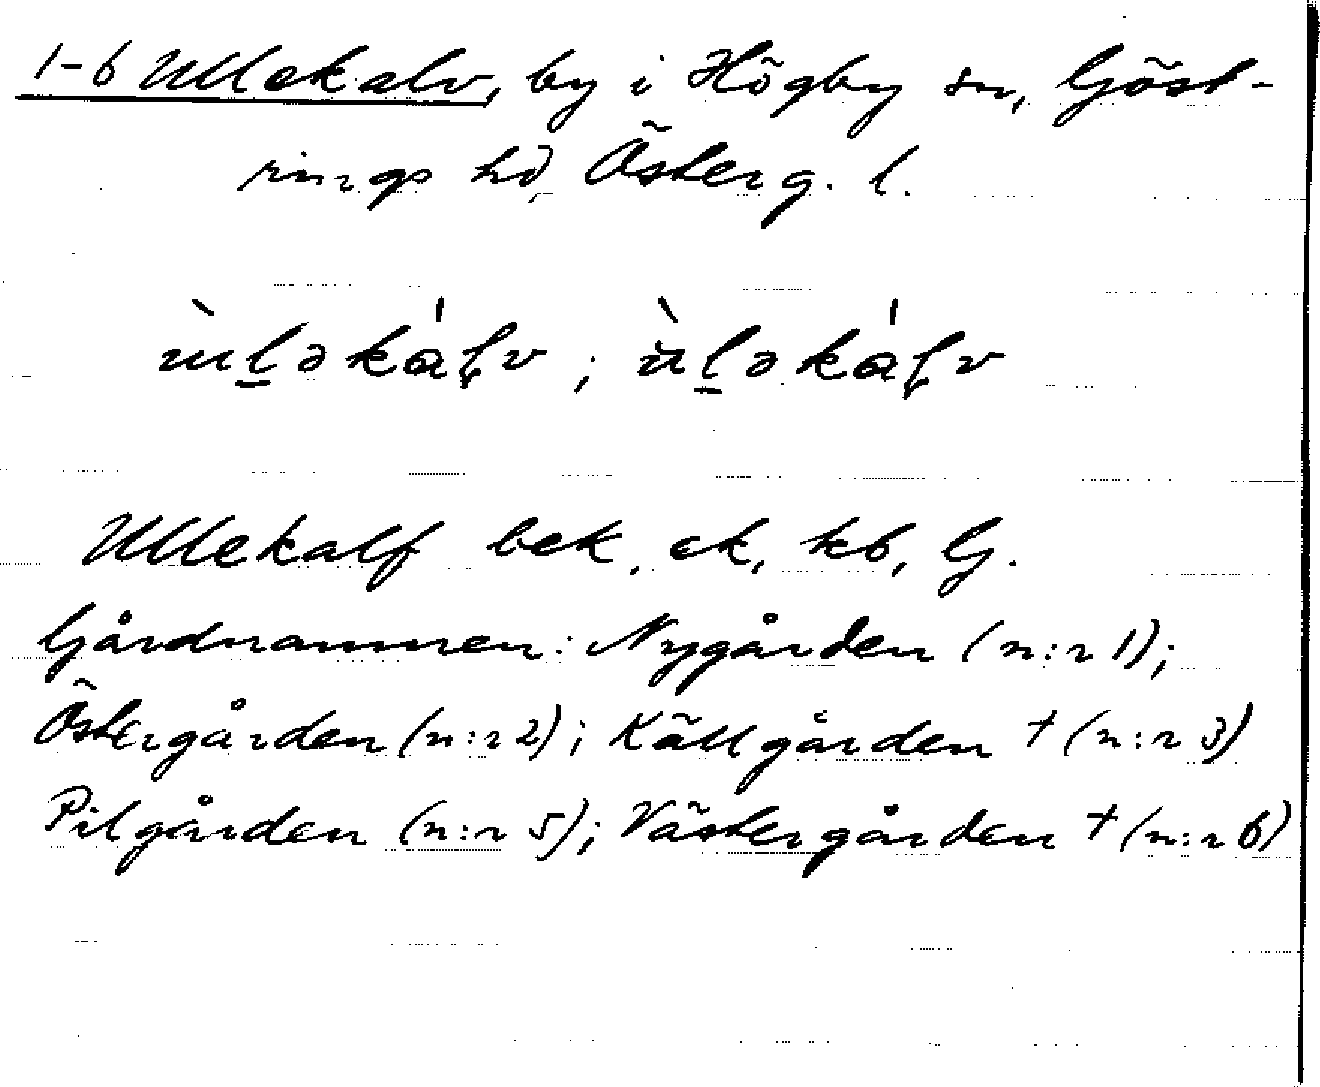 1-6 Ullekalv, by i Högby sn, Göst-
rings hd, Österg. l.
ùl̠əkáļv ; ùl̠əkáļv
Ullekalf bek, ek, kb, G.
Gårdnamnen: Nygården (n:r 1);
Östergården (n:r 2); Källgården † (n:r 3)
Pilgården (n:r 5); Västergården † (n:r 6)